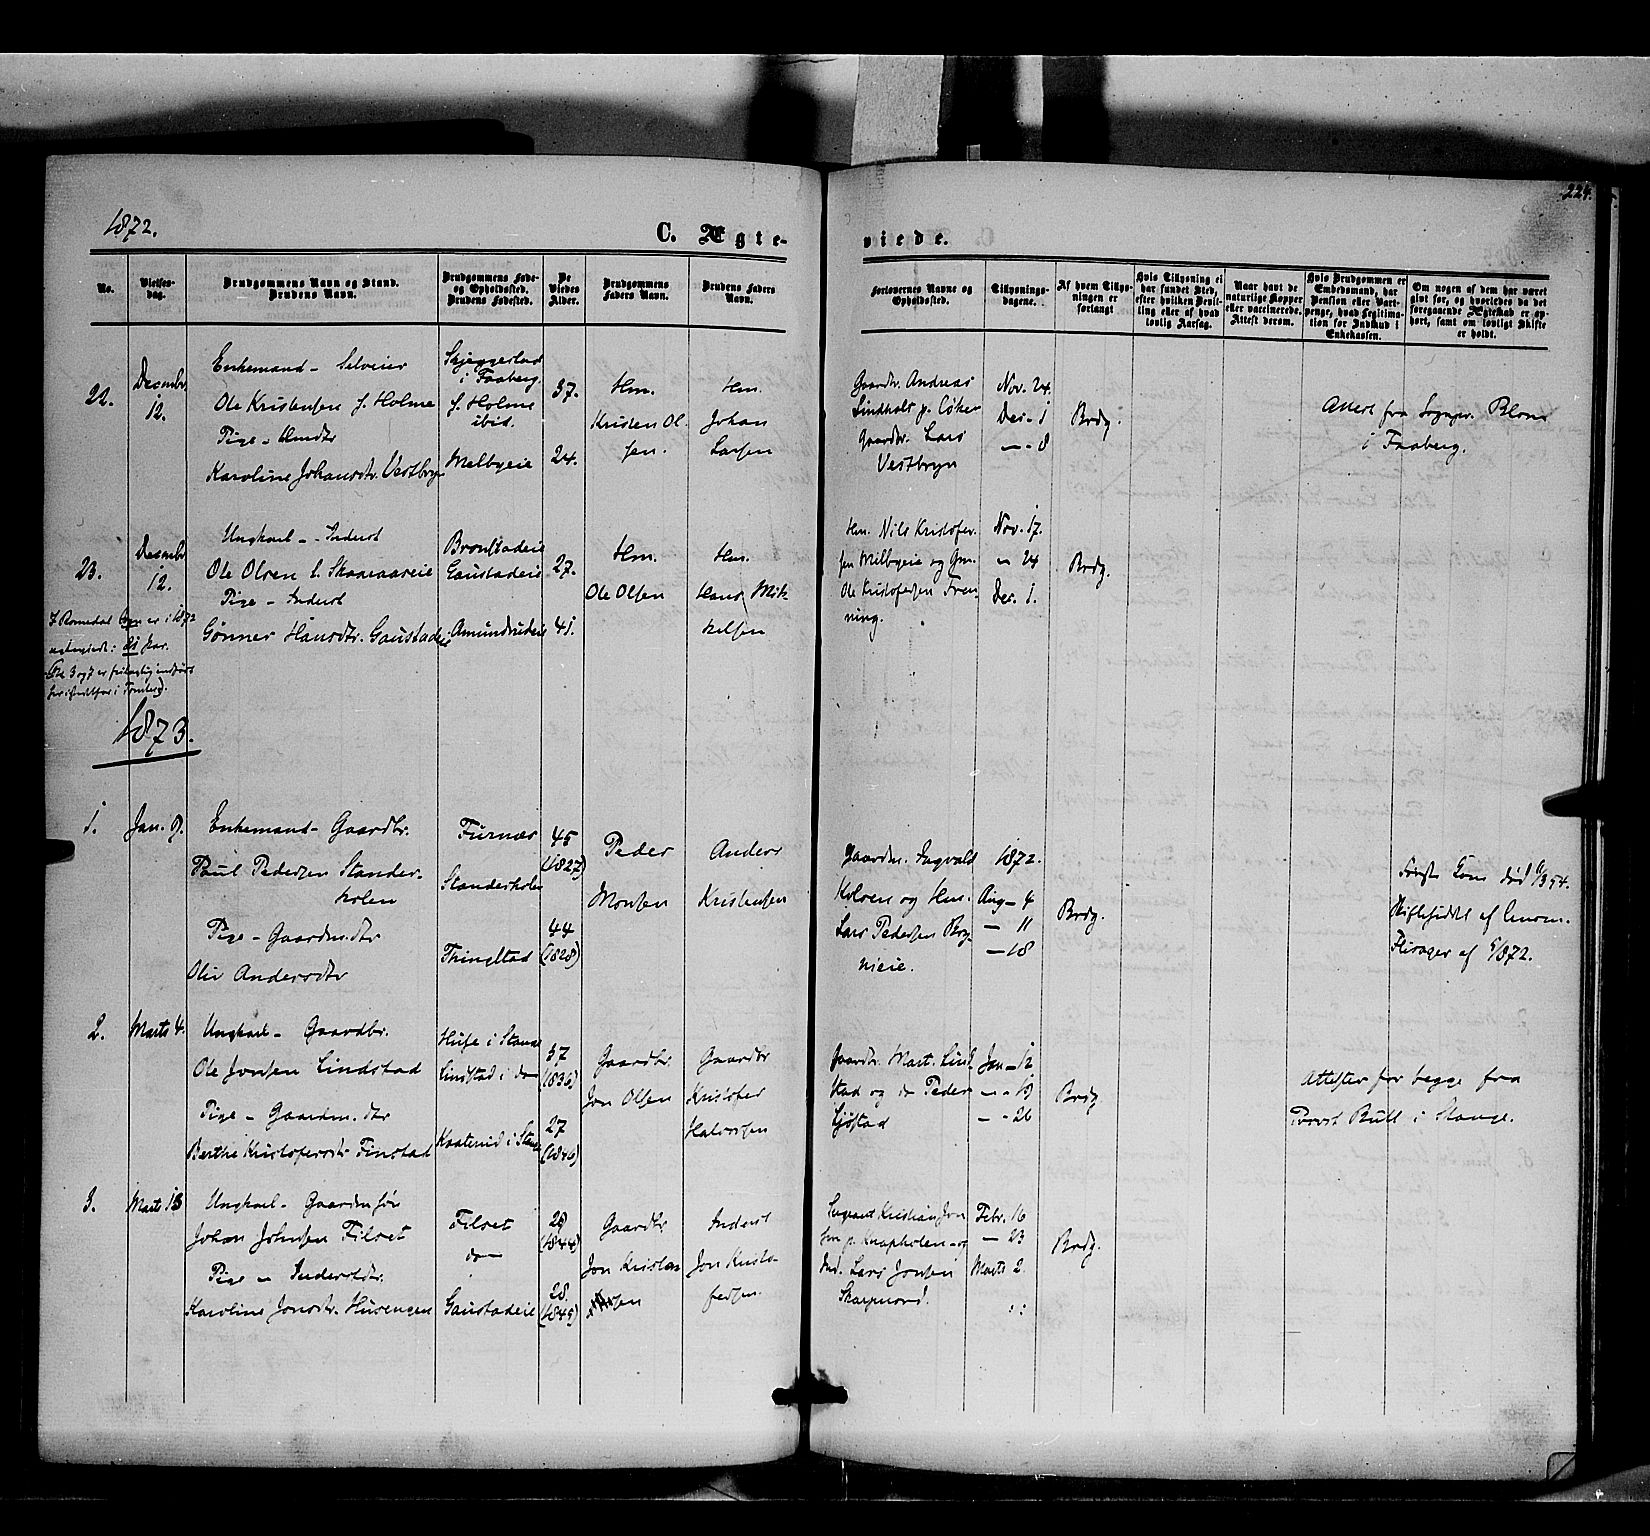 224.
1872.
C. Ægte-
viede.
No.
Vielses-
dag.
Brudgommens Navn og Stand.
Brudens Navn.
Brudgommens Føde-
og Opholdssted.
Brudens Fødested.
De
Viedes
Alder.
Brudgommens
Faders Navn.
Brudens Faders
Navn.
Forlovernes Navne og
Opholdssted.
Tillysnings-
dagene.
Af hvem Tillys-
ningen er
forlangt
Hvis Tillysning ei
har fundet Sted,
efter hvilken Bevil-
ling eller af hvad
lovlig Aarsag.
Naar havt de
naturlige Kopper
eller vaccinerede.
Attest derom.
Hvis Brudgommen er
Embedsmand, har
Pension eller Vart-
penge, hvad Legitima-
tion for Indskud i
Enkekassen.
Om nogen af dem har været
gift før, og hvorledes da det
foregaaende Ægteskab er op-
hørt, samt om lovligt Skifte
er holdt.
22.
Decembr
12.
Enkemand - Selveier
Ole Kristensen f. Holme
Pige -
Karoline Johansdtr. Vestbryn
Skjeggestad
i Faaberg.
f. Holme
ibid.
Melbyeie
37.
24.
Hm.
Kristen Ol-
sen.
Hm.
Johan
Larsen
Gaardbr. Andreas
Lindholt p. Løken
Gaardbr. Lars
Vestbryn
Nov. 24
Dec. 1
— 8
Brdg.
Attest fra Sognepr. Blom
i Faaberg.
23.
Decembr
12.
Ungkarl - Inderst
Ole Olsen
Pige - Inderst
Gønner Hansdtr. Gaustadeie
Bronstadeie
Gaustadeie
Amundrudeie
27.
41.
Hm.
Ole Olsen
Hm.
Hans Mik-
kelsen
Hm. Nils Kristofer-
sen Melbyeie og Gm.
Ole Kristofersen Fren-
ning.
Nov. 17.
— 24
Dec. 1.
Brdg.
I Romedal Sogn er i 1872
1873.
1.
Jan. 9.
Enkemand - Gaardbr.
Paul Pedersen Stander-
holen
Pige - Gaardm.dtr
Oliv Andersdtr
Furnæs
Standerholen
Thingstad
45
(1827)
44
(1828)
Peder
Monsen
Anders
Kristensen
Gaardm. Ingvald
Kolsen og Hm.
Lars Pedersen Bry-
nieie.
1872.
Aug. 4
— 11
— 18
Brdg.
Første Kone død
Skifteseddel af
2.
Marts 4.
Ungkarl - Gaardbr.
Ole Jonsen Lindstad
Pige - Gaardm. dtr
Berthe Kristofersdtr Finstad
Huse i Stange
Lindstad i do
Kaaterud i Stange
37
(1836)
27
(1846)
Gaardbr
Jon Olsen
Gaardbr
Kristofer
Halvorsen
Gaardbr. Mart. Lind-
stad og do Peder
Sjøstad
Jan. 12
— 19
— 26
Brdg
Attester for begge fra
Provst Bull i Stange.
3.
Marts 13
Ungkarl - Gaardm.søn
Johan Johnsen Filset
Pige - Inderstdtr.
Karoline Jonsdtr. Hurengen
Filset
do
Gaustadeie
29
(1844)
28.
(1845)
Gaardbr
Jon Kristian-
sen
Inderst
Jon Kristo-
fersen.
Sergeant Kristian Jon-
sen p. Knapholen og
Ind. Lars Jonsen
Skarpnord.
Febr. 16
— 23
Marts 2.
Brdg.